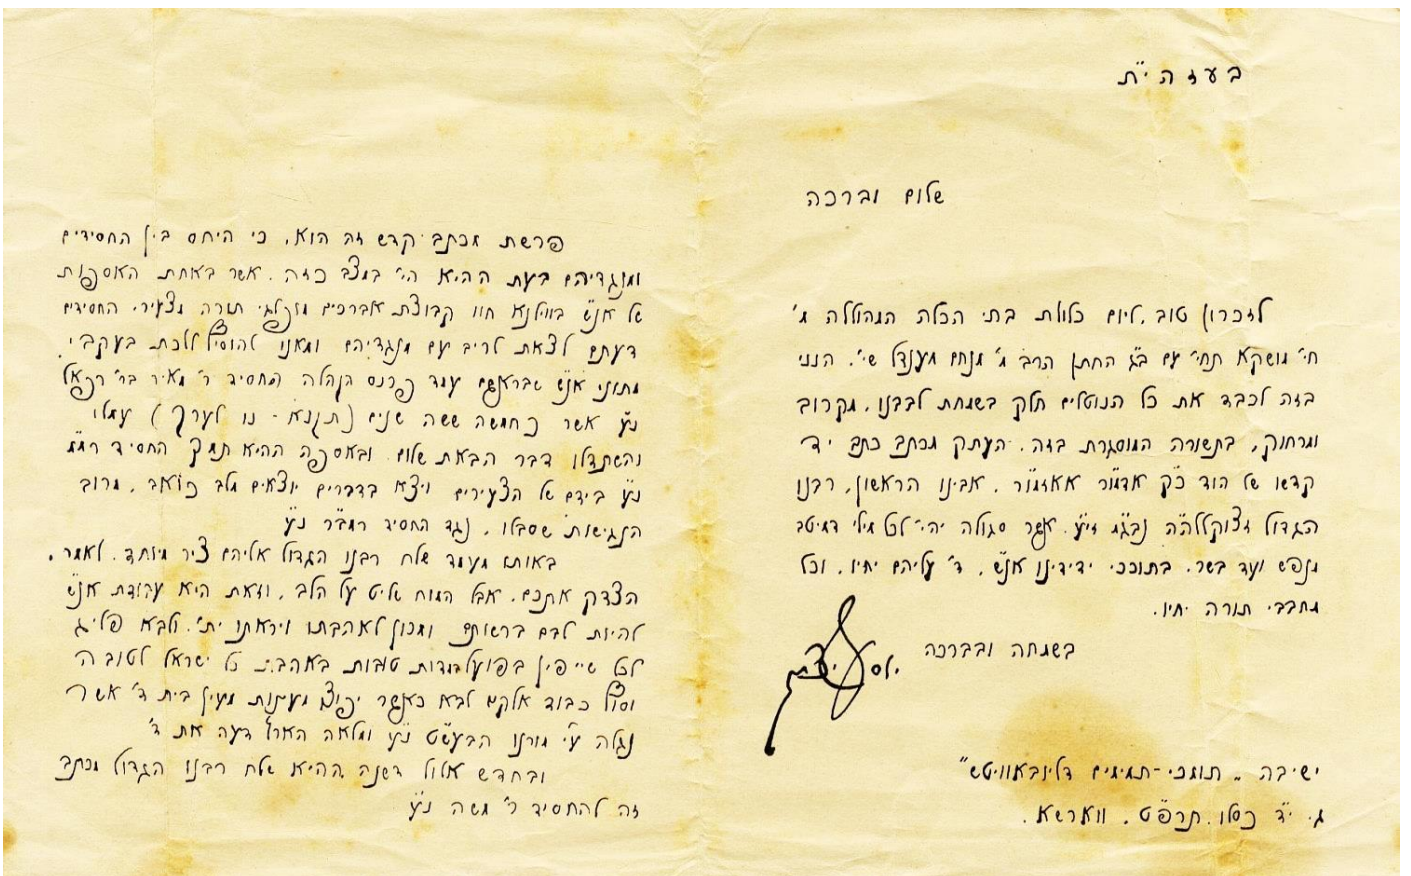 בעזהי״ת
שלום וברכה
לזכרון טוב, ליום כלולת בתי הכלה המהוללה מ׳
חי׳ מושקא תחי׳ עם ב״ג החתן הרב מ׳ מנחם מענדל שי׳. הנני
בזה לכבד את כל הנוטלים חלק בשמחת לבבנו, מקרוב
ומרחוק, בתשורה המוסגרת בזה. העתק מכתב כתב יד
קדשו של הוד כ״ק אדמו״ר אאזמו״ר, אבינו הראשון, רבנו
הגדול זצוקללה״ה נבג״מ זי״ע. אשר סגולה יהי׳ לכל מילי דמיטב
מנפש ועד בשר. בתוככי ידידינו אנ״ש, ד׳ עליהם יחיו, וכל
מחבבי תורה יחיו.
בשמחה ובברכה
ישיבה „תומכי-תמימים דליובאוויטש״
ג. י״ד כסלו. תרפ״ט. ווארשא.
פרשת מכתב קדש זה הוא, כי היחס בין החסידים
ומנגדיהם בעת ההיא הי׳ במצב כזה. אשר באחת האספות
של אנ״ש בווילנא חוו קבוצת אברכים מופלגי תורה מצעירי החסידים
דעתם לצאת לריב עם מנגדיהם ומאנו להוסיף ללכת בעקבי
מתוני אנ״ש שבראשם עמד פרנס הקהלה החסיד ר׳ מאיר בר׳ רפאל
נ״ע אשר כחמשה ששה שנים (תקנא - נו לערך) עמלו
והשתדלו דבר הבאת שלום. ובאספה ההיא תמך החסיד
נ״ע בידם של הצעירים ויצא בדברים יוצאים מלב כואב, מרוב
הנגישות שסבלו, נגד החסיד רמב״ר נ״ע
באותו מעמד שלח רבנו הגדול אליהם ציר מיוחד. לאמר.
הצדק אתכם. אבל המוח שליט על הלב, וזאת היא עבודת אנ״ש
להיות לבם ברשותם ומכון לאהבתו ויראתו ית׳. ולבא פליג
לכל שייפין בפועל במדות טובות באהבת כל ישראל לטובה
וסוף כבוד אלקים לבא כאשר יפוצו מעינות מעין בית ד׳ אשר
נגלה ע״י מורנו הבעש״ט נ״ע ומלאה הארץ דעה את ד׳
ובחדש אלול דשנה ההיא שלח רבנו הגדול מכתב
זה להחסיד ר׳ משה נ״ע